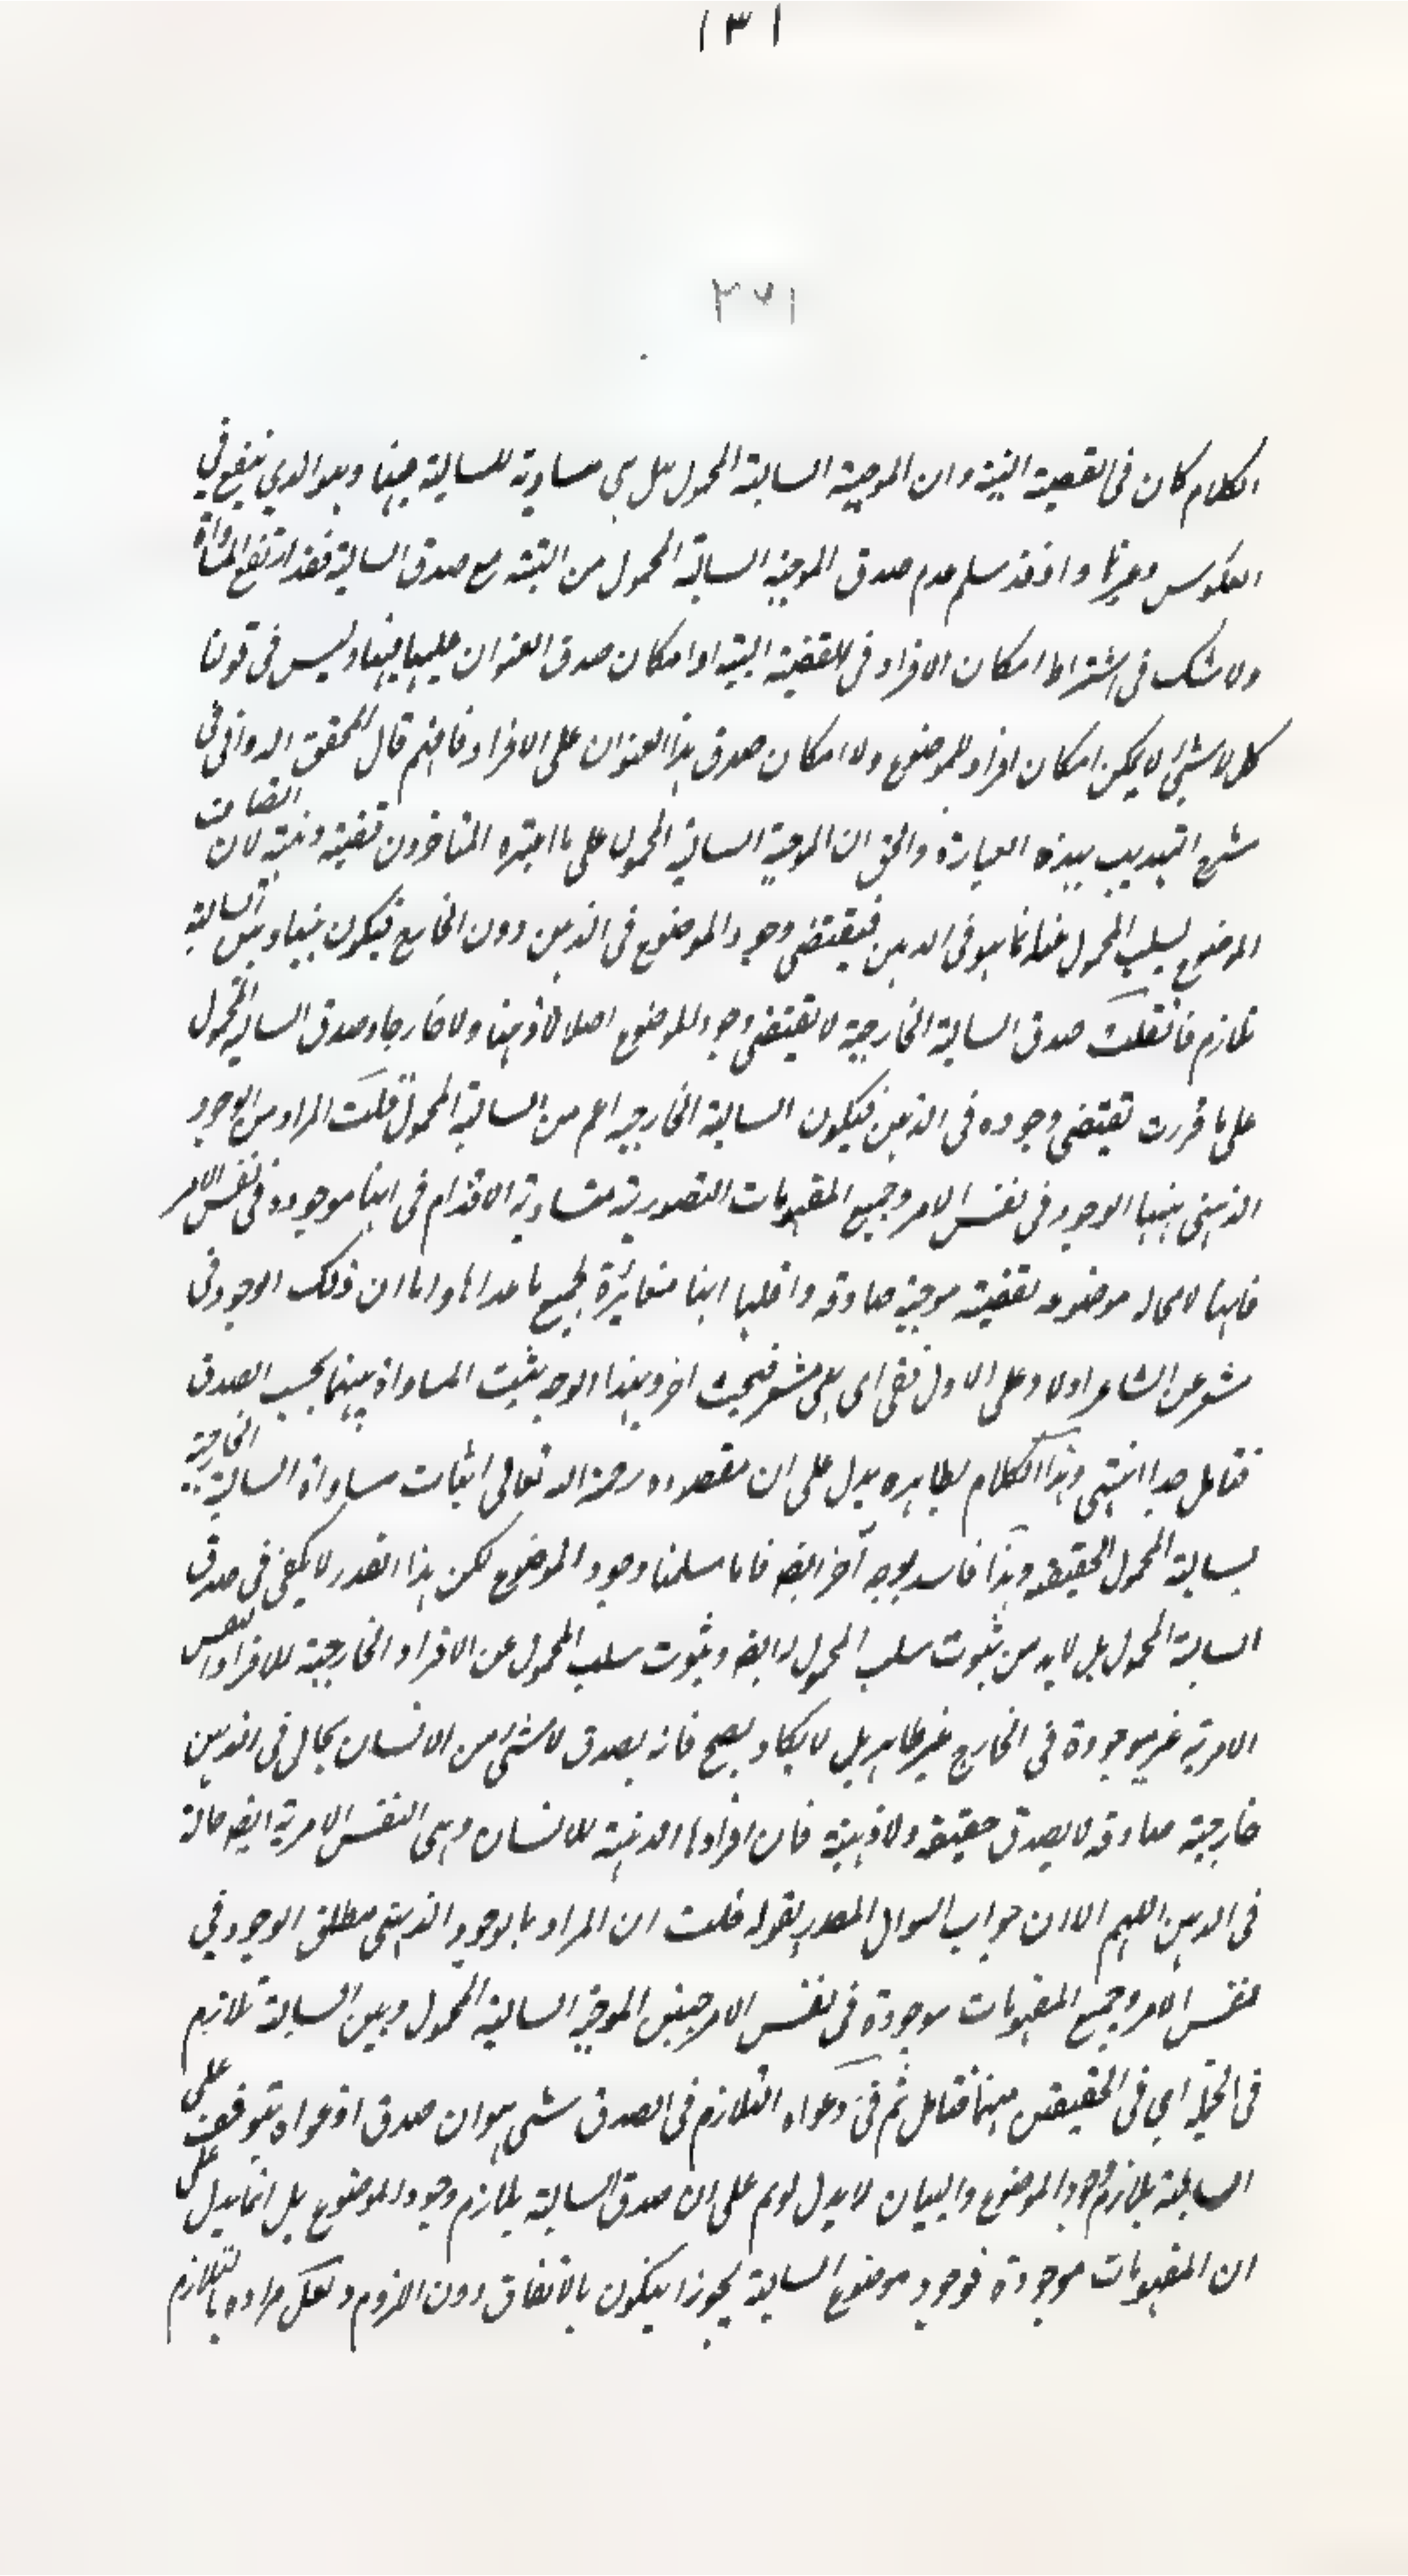 ١٣١
١٧٣
الكلام كان فى القضية البتية وان الموجبة السالبة المحمول هل هى مساوية للسالبة بينها وهو الذي ينفع في
العكوس وغيرها واذ قد سلم عدم صدق الموجبة السالبة المحمول من البتية مع صدق السالبة فقد ارتفع المساواة
ولا شك فى اشتراط امكان الافراد فى القضية البتية او امكان صدق العنوان عليها فيها وليس فى قولنا
كل لا شئ لا يمكن امكان افراد الموضوع ولا امكان صدق هذا العنوان على الافراد فافهم قال المحقق الدوانى فى
شرح التهذيب بهذه العبارة والحق ان الموجبة السالبة المحمول على ما اعتبره المتأخرون قضية ذهنية لان اتصاف
الموضوع بسلب المحمول عنه انما هو فى الذهن فيقتضى وجود الموضوع فى الذهن دون الخارج فيكون بينها وبين السالبة
تلازم فان قلت صدق السالبة الخارجية لا يقتضى وجود الموضوع اصلا لا ذهنا ولا خارجا وصدق السالبة المحمول
على ما قررت يقتضى وجوده فى الذهن فيكون السالبة الخارجية اعم من السالبة المحمول قلت المراد من الوجود
الذهنى ههنا الوجود فى نفس الامر وجميع المفهومات التصورية متساوية الاقدام فى انها موجودة فى نفس الامر
فانها لا محالة موضوعة لقضية موجبة صادقة واقلها انها مغايرة لجميع ما عداها واما ان ذلك الوجود فى
مشعر من المشاعر اولا وعلى الاول ففى اى مشعر فبحث اخر وبهذا الوجه يثبت المساواة بينهما بحسب الصدق
فتامل جدا انتهى وهذا الكلام بظاهره يدل على ان مقصوده رحمة الله تعالى اثبات مساواة السالبة الخارجية
بسالبة المحمول الحقيقة وهذا فاسد بوجه آخر ايضه فانا سلمنا وجود الموضوع لكن هذا القدر لا يكفى فى صدق
السالبة المحمول بل لابد من ثبوت سلب المحمول له ايضه وثبوت سلب المحمول عن الافراد الخارجية للافراد النفس
الامرية غير موجودة فى الخارج غير ظاهر بل لا يكاد يصح فانه يصدق لا شئ من الانسان بحال فى الذهن
خارجية صادقة لا يصدق حقيقة ولا ذهنية فان افرادها الذهنية للانسان وهى النفس الامرية ايضه حالة
فى الذهن اللهم الا ان جواب السوال المصدر بقوله قلت ان المراد بالوجود الذهنى مطلق الوجود في
نفس الامر وجميع المفهومات موجودة فى نفس الامر فبين الموجبة السالبة المحمول وبين السالبة تلازم
فى الجملة اي فى الحقيقتين منهما فتامل ثم فى دعواه التلازم فى الصدق شئ هو ان صدق ادعواه يتوقف على
السالبة يلازم وجود الموضوع والبيان لا يدل لو تم على ان صدق السالبة يلازم وجود الموضوع بل انما يدل على
ان المفهومات موجودة فوجود موضوع السالبة يجوز ان يكون بالاتفاق دون اللزوم ولعل مراده بالتلازم